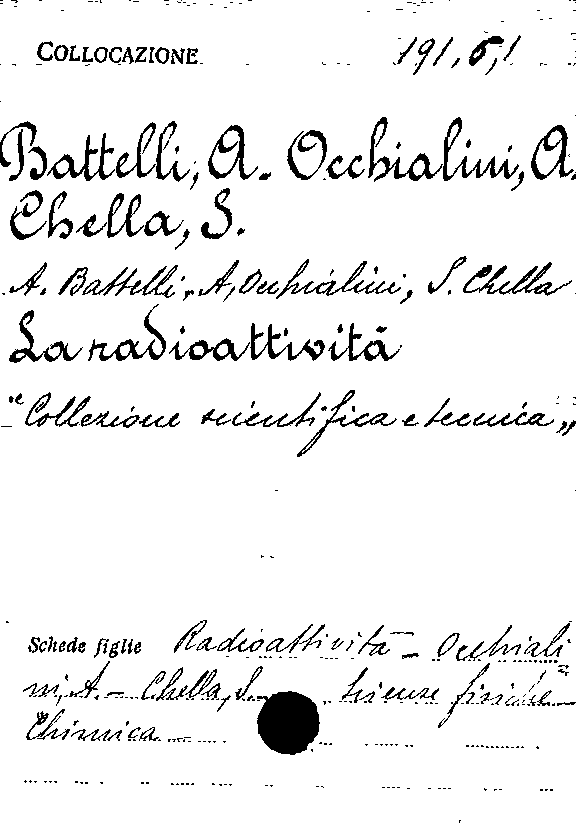 COLLOCAZIONE 191,5,1
Battelli, A. Occhialini, A.
Chella, S.
A. Battelli, A, Occhialini, S. Chella
La radioattività
"Collezione scientifica e tecnica"
Schede figlie Radioattività - Occhiali
ni, A. - Chella, S. - Scienze fisiche -
Chimica -